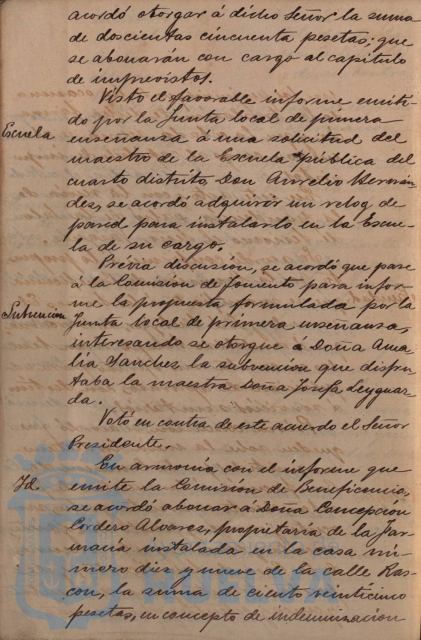 acordó otorgar á dicho Señor la suma
de doscientas cincuenta pesetas; que
se abonarán con cargo al capítulo
de imprevistos.
Visto el favorable informe emiti-
Escuela
do por la Junta local de primera
enseñanza á una solicitud del
maestro de la Escuela pública del
cuarto distrito, Don Aurelio Hernán
dez, se acordó adquirir un relog de
pared para instalarlo en la Escue-
la de su cargo.
Prévia discusión, se acordó que pase
á la Comisión de Fomento para infor-
Subvención
me la propuesta formulada por la
Junta local de primera enseñanza,
interesando se otorgue á Doña Ama-
lia Sanchez la subvención que disfru-
taba la maestra Doña Josefa
da.
Votó en contra de este acuerdo el Señor
Presidente.
En armonía con el informe que
Id
emite la Comisión de Beneficencia,
se acordó abonar á Doña Concepción
Cordero Alvarez, propietaria de la Far-
macia instalada en la casa nú-
mero diez y nueve de la calle Ras-
con, la suma de ciento veinticinco
pesetas, en concepto de indemnización